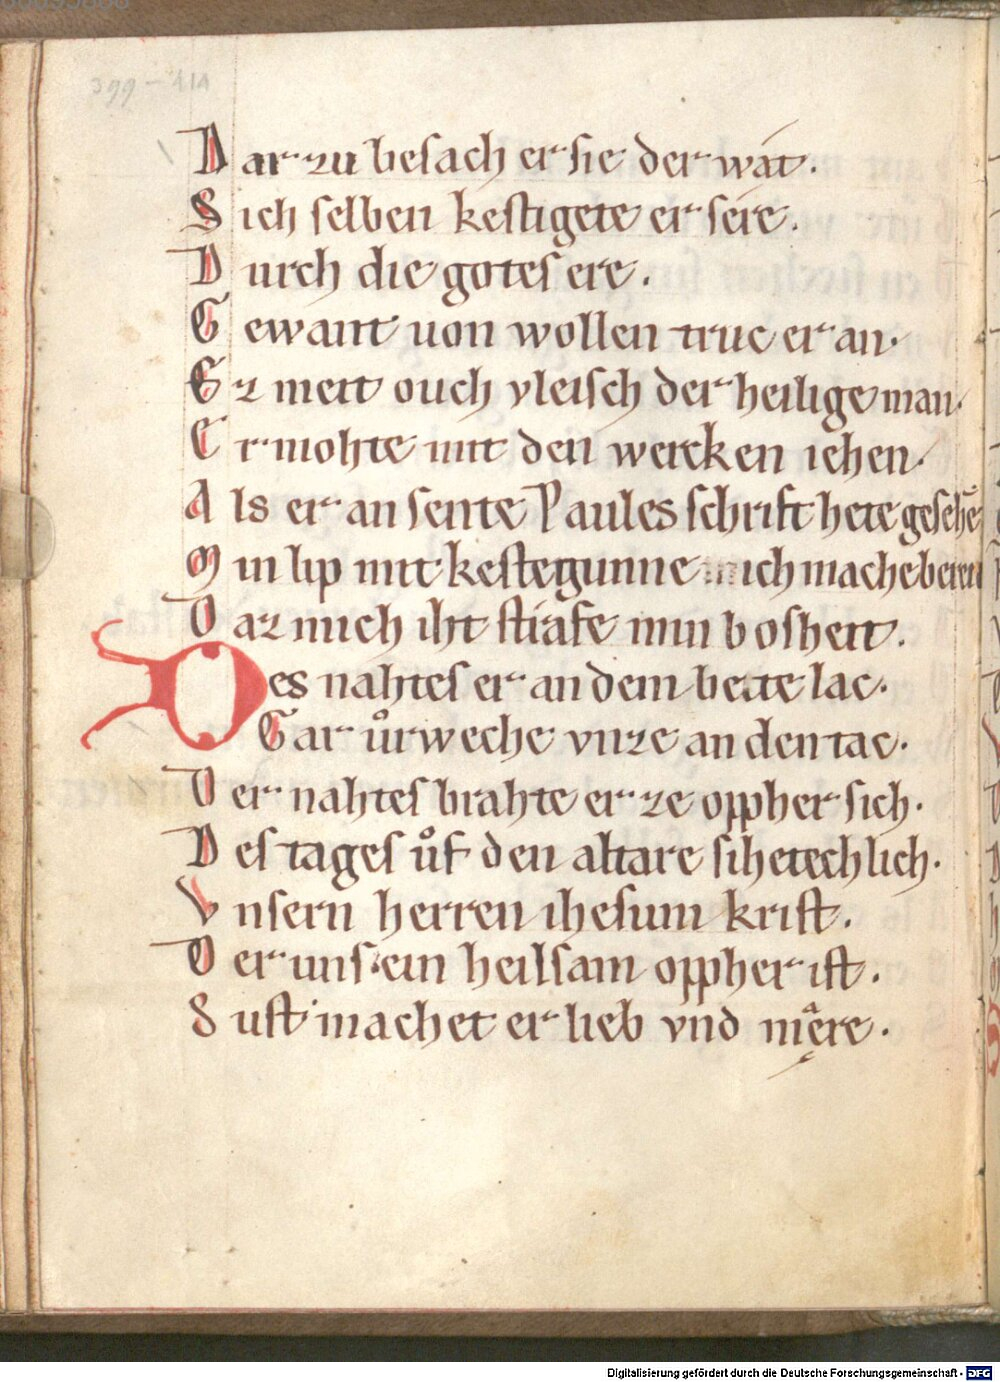 399-414
Dar zu besach er sie der wat.
Sich selben kestigete er sere.
Durch die gotes ere.
Gewant uon wollen truc er an.
Ez meit ouch vleisch der heilige man.
Er mohte mit den wercken iehen.
Als er an sente Paules schrift hete gesehē
Min lip mit kestegunne mich mache bereit
Daz mich iht strafe min bosheit.
Des nahtes er an dem bette lac.
Gar uͦrweche vnze an den tac.
Der nahtes brahte er ze oppher sich.
Des tages uͦf den altare sihetechlich.
Vnsern herren ihesum krist.
Der uns ein heilsam oppher ist.
Sust machet er lieb vnd mêre.
Digitalisierung gefördert durch die Deutsche Forschungsgemeinschaft - DFG